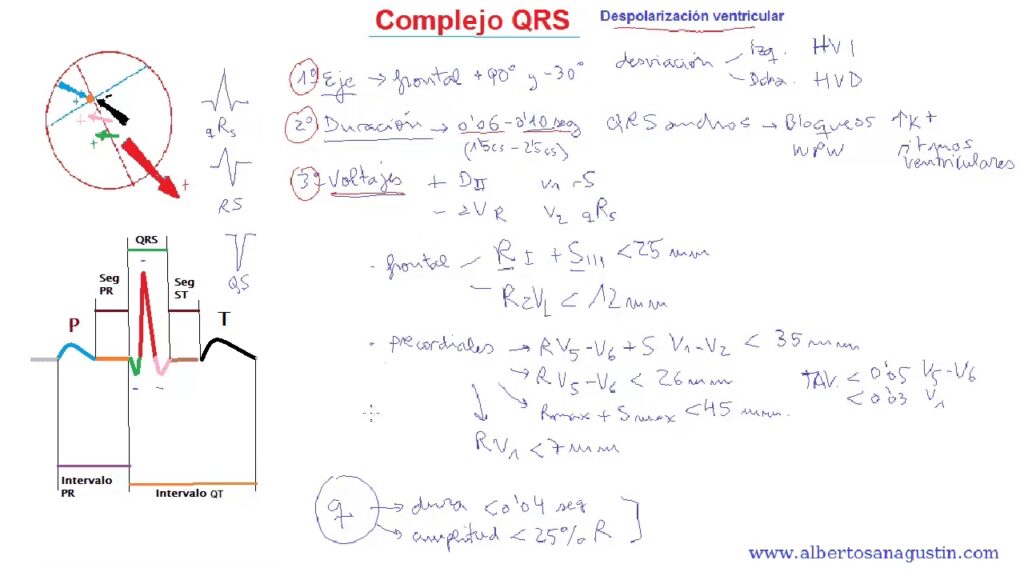 Complejo QRS
Despolarización ventricular
desviación Izq. HVI
Dcha. HVD
1º Eje → frontal +90° y -30°
2º Duración → 0'06-0'10 seg QRS anchos → Bloqueos ↑K+
(1'5cs - 2'5cs) WPW ritmos
ventriculares
3º Voltajes + DII V1 rS
- aVR V2 qRs
qRs
RS
QS
· frontal RI + SIII < 25 mm
RaVL < 12 mm
· precordiales → RV5-V6 + S V1-V2 < 35 mm
→ RV5-V6 < 26 mm
Rmax + Smax < 45 mm.
RV1 < 7 mm
TAV. < 0'05 V5-V6
< 0'03 V1
q → dura < 0'04 seg
→ amplitud < 25% R
QRS
Seg
PR
Seg
ST
P
T
Intervalo
PR
Intervalo QT
www.albertosanagustin.com